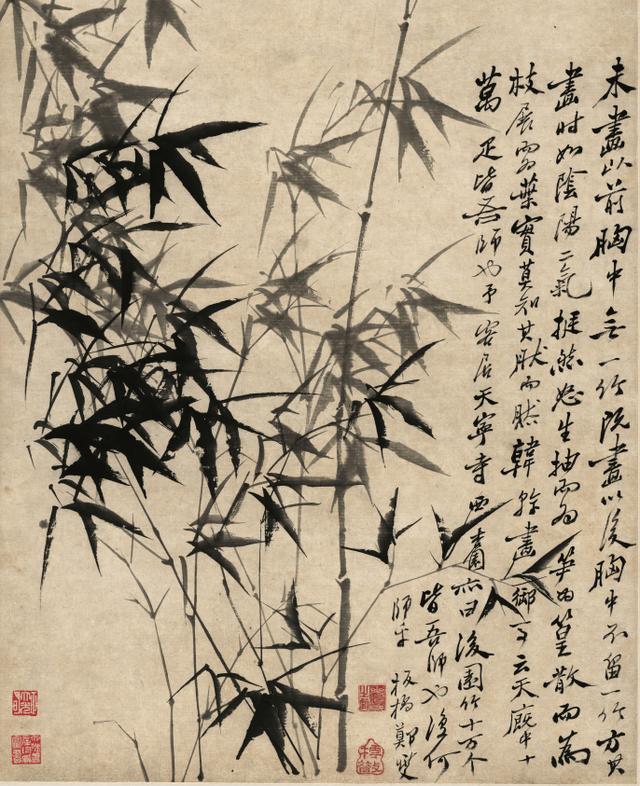 未畫以前胸中無一竹既畫以後胸中不留一竹方其
畫時如陰陽二氣挺然怒生抽而為笋為篁散而為
枝展而為葉實莫知其然而然韓幹畫御馬云天廄中十
萬疋皆吾師也予客居天寧寺西亦曰後園竹十万个
皆吾師也復何
師乎 板橋鄭燮